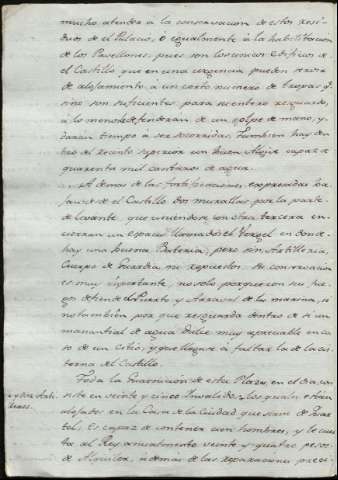 mucho atender a la conservacion de estos resi-
duos de el Palacio, ò egualmente à la habilitacion
de los Pavellones, pues son los unicos edificios de
el Castillo, que en una urgencia pueden servir
de alojamiento à un corto numero de tropas q.e
sino son suficientes para su entero resguardo,
a lo menos le defenderan de un golpe de mano, y
daràn tiempo à ser socorridas; tambien hay den-
tro del recinto superior un buen Algive capaz de
quarenta mil cantaros de agua.
A demas de las fortificaciones, expresadas ba-
jan de el Castillo dos murallas por la parte
de levante, que uniendose con otra tercera en-
cierran un espacio llamado el Vergel en donde
hay una buena Bateria; pero sin Artilleria,
Cuerpo de Guardia ni repuestos. Su conservacion
es muy importante, no solo porque con sus fue-
gos defiende el Puerto y Arraval de la marina, si
no tambien por que resguarda dentro de si un
manantial de agua dulce muy apreciable en ca-
so de un Sitio, y que llegase à faltar la de la cis-
terna del Castillo.
Toda la Guarnicion de esta Plaza, en el dia, con-
siste en veinte y cinco Invalidos, los quales estan
alojados en la Casa de la Ciudad que sirve de Quar-
tel; Es capaz de contener cien hombres, y le cues-
ta al Rey anualmente veinte y quatro pesos
de Alquiler, à demas de las reparaciones preci-
y dos Arti-
lleros.